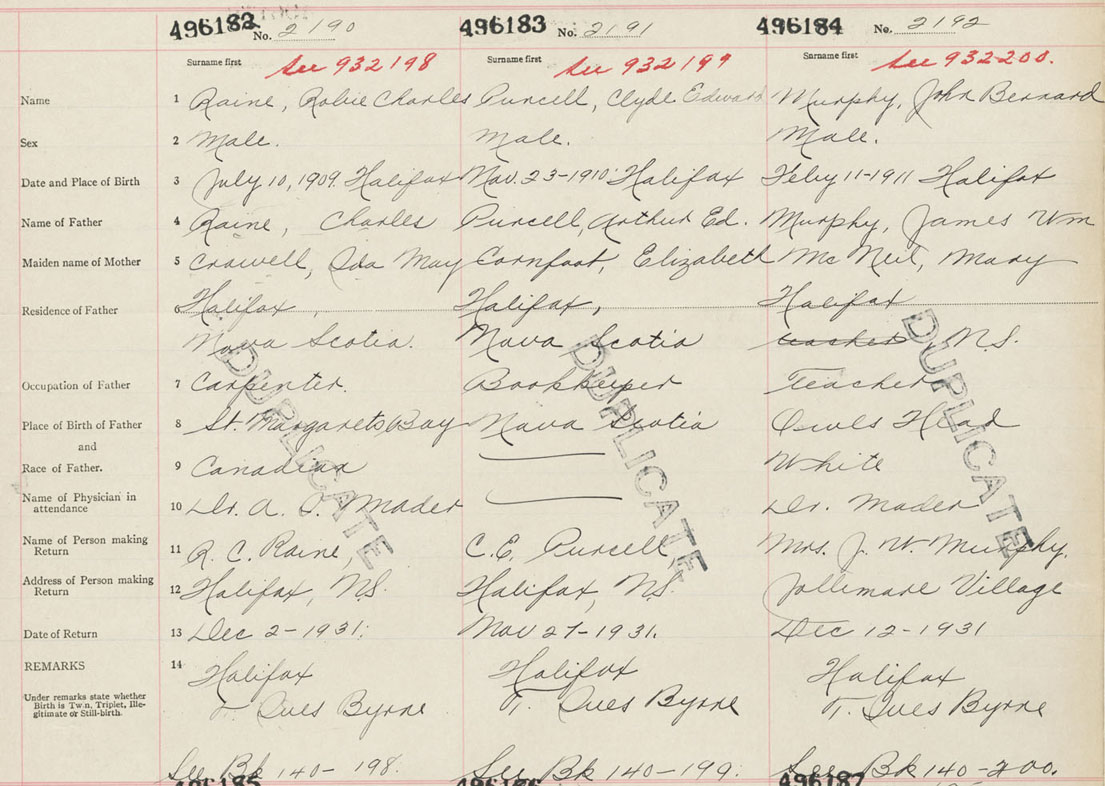 496182 No. 2190 496183 No. 2191 496184 No. 2192
Surname first Surname first Surname first
See 932198 See 932199 See 932200.
Name 1 Raine, Robie Charles Purcell, Clyde Edward Murphy, John Bernard
Sex 2 Male. Male. Male.
Date and Place of Birth 3 July 10, 1909. Halifax Nov. 23-1910 Halifax Feby 11-1911 Halifax
Name of Father 4 Raine, Charles Purcell, Arthur Ed. Murphy, James Wm
Maiden name of Mother 5 Crowell, Ida May Cornfoot, Elizabeth McNeil, Mary
Residence of Father 6 Halifax, Halifax, Halifax
Nova Scotia. Nova Scotia teacher N.S.
Occupation of Father 7 Carpenter. Bookkeeper Teacher
Place of Birth of Father 8 St. Margarets Bay Nova Scotia Owls Head
and
Race of Father. 9 Canadian White
Name of Physician in
attendance 10 Dr. A. I. Mader Dr. Mader
Name of Person making
Return 11 R. C. Raine, C.E. Purcell, Mrs. J. W. Murphy.
Address of Person making
Return 12 Halifax, N.S. Halifax, N.S. Jollimore Village
Date of Return 13 Dec 2-1931. Nov 27-1931. Dec 12-1931
REMARKS 14 Halifax Halifax Halifax
Under remarks state whether
Birth is Twin, Triplet, Ille-
gitimate or Still-birth.
T. Ives Byrne T. Ives Byrne T. Ives Byrne
See Bk 140-198. See Bk 140-199. See Bk 140-200.
496185 496186 496187
DUPLICATE DUPLICATE DUPLICATE